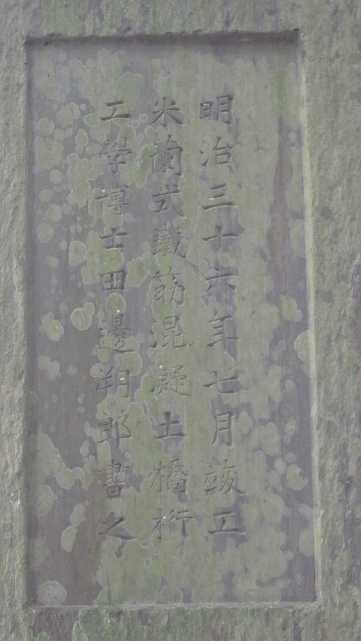 明治三十六年七月竣工
米蘭式鐵筋混凝土橋桁
工學博士田邊朔郎書之